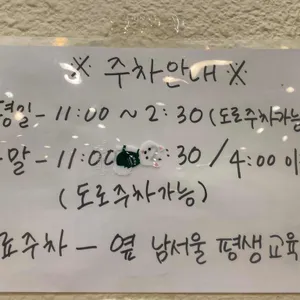 ※ 주차안내 ※
평일 - 11:00 ~ 2:30 (도로주차가능
말 - 11:00 :30 / 4:00 이
( 도로주차가능 )
료주차 - 옆 남서울 평생교육